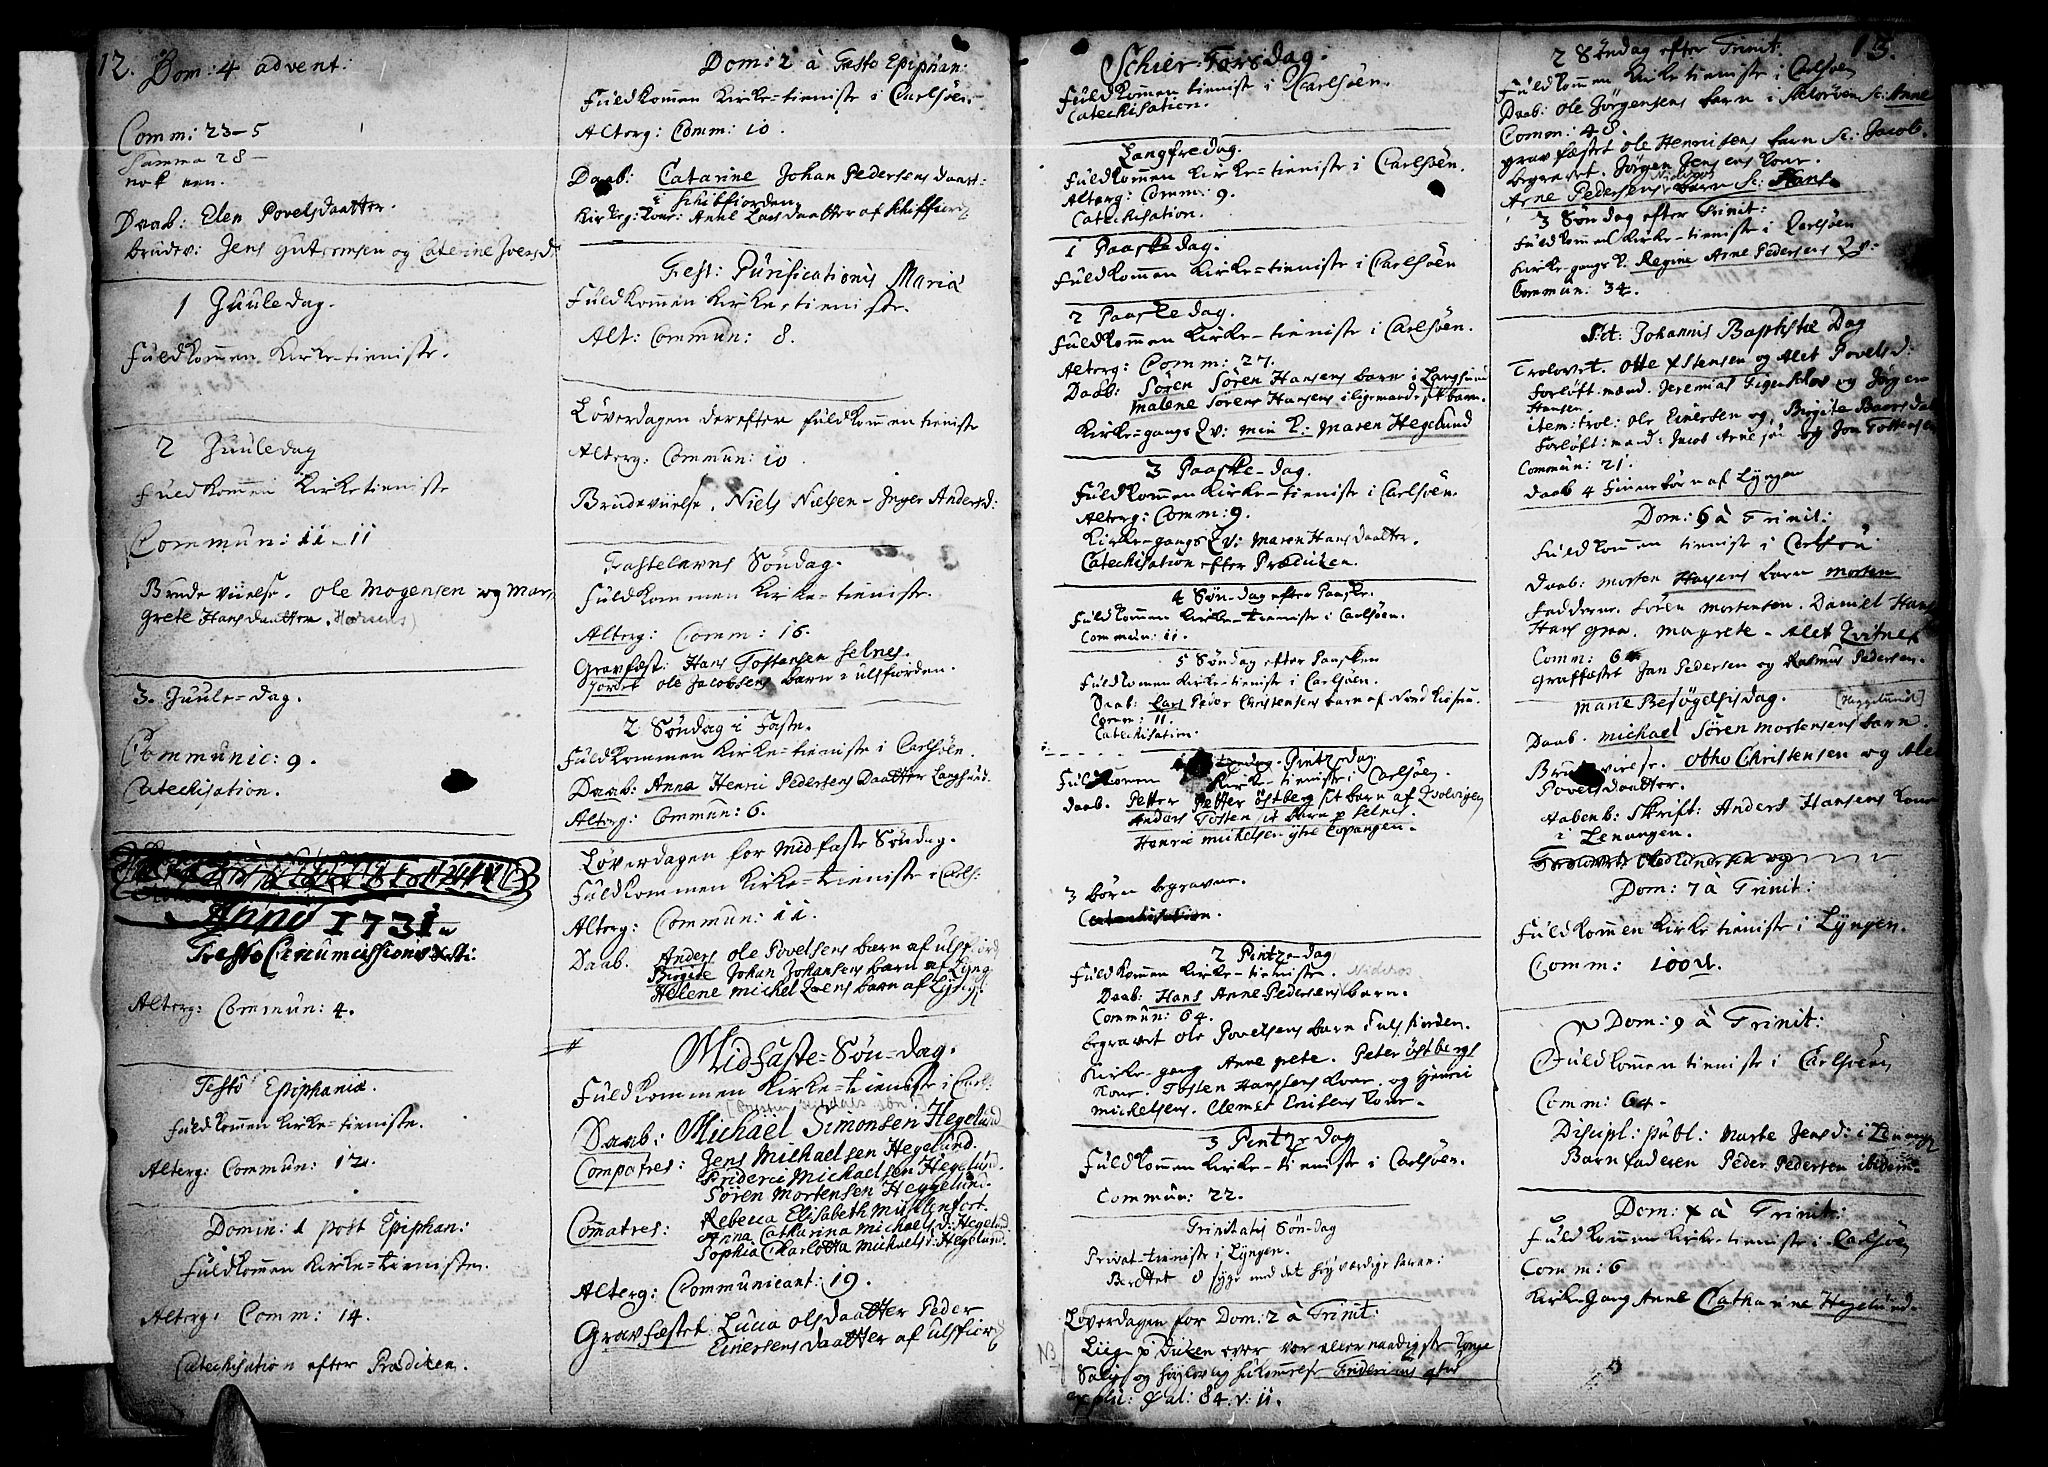 12. Dom: 4 advent:
Comm: 23–5
summa 28 –
nok een.
Daab: Elen Povelsdaatter.
brudev: Jens og Caterine
1 Juuledag.
Fuldkommen Kirke-tieniste.
2 Juuledag
Fuldkommen Kirketieniste
Commun: 11–11
Brude viielse. Ole Mogensen og Mar-
grete Hansdaatter.
3. Juule-dag.
Communic: 9.
Catechisation.
Anno 1731.
Festo Circumcissionis Xsti:
Alterg: Commun: 4.
Festo Epiphaniæ.
Fuldkommen Kirke-tieniste.
Alterg: Commun: 12.
Domin: 1 post Epiphan:
Fuldkommen Kirke-tieniste.
Alterg: Comm: 14.
Catechisation efter Prædiken.
Dom: 2 à Festo Epiphan:
Fuldkommen Kirke-tieniste i Carlsöen.
Alterg: Comm: 10.
Daab: Catarine Johan Pedersens daatt:
i Skibfiorden
Kirkeg: Kone: Anne Larsdaatter af
Fest: Purificationis Mariæ
Fuldkommen Kirke-tieniste.
Alt: Commun: 8.
Løverdagen derefter fuldkommen tieniste
Alterg: Commun: 10.
Brudeviielse. Niels Nielsen – Inger Andersd:
Fastelavns Søndag.
Fuldkommen Kirke-tieniste.
Alterg: Comm: 16.
Gravfæst: Hans Tostensen Selnes.
Jordet Ole Jacobsens barn i ulsfiorden.
2 Søndag i Faste.
Fuldkommen Kirke-tieniste i Carlsöen.
Daab: Anna Henric Pedersens Daatter Langsund.
Alterg: Commun: 6.
Løverdagen for Midfaste Søndag.
Fuldkommen Kirke-tieniste i Carls:
Alterg: Commun: 11.
Daab. Anders Ole Povelsens barn af
Birgite Johan Johansens barn af Lyng
Helene Michel barn af
Midfaste-Søn-dag.
Fuldkommen Kirke-tieniste i Carls:
Daab: Michael Simonsen Hegelund
Compatres: Jens Michaelsen Hegelund.
Frideric Michaelsen Hegelund.
Sören Mortensen Heggelund.
Commatres: Rebecca Elisabeth
Anna Catharina Michaelsd: Hegelund.
Sophia Charlotta Michaelsd: Hegelund.
Alterg: Communicant: 19.
Gravfæstet: Lucia Olsdaatter Peder
Einersens daatter af ulsfiord
Schier-Torsdag.
Fuldkommen tieniste i Carlsöen.
Catechisation.
Langfredag.
Fuldkommen Kirke-tieniste i Carlsöen.
Alterg: Comm: 9.
Catechisation.
1 Paaskedag.
Fuldkommen Kirke-tieniste i Carlsöen
2 Paaskedag.
Fuldkommen Kirke-tieniste i Carlsöen.
Alterg: Comm: 27.
Daab: Sören Sören Hansens barn i Langsund
Malene Sörens Hansens barn.
Kirke-gangs Qv: min K: Maren Hegelund
3 Paaske-dag.
Fuldkommen Kirke-tieniste i Carlsöen.
Alterg: Comm: 9.
Kirke-gangs Qv: Maren Hansdaatter.
Catechisation efter Prædiken.
4 Søn-dag efter Paaske.
Fuldkommen Kirke-tieniste i Carlsöen.
Commun: 11.
5 Søndag efter Paasken
Fuldkomen Kirke-tieniste i Carlsöen.
Daab: Lars Peder Christensens barn af
Comm: 11.
Catechisation.
Pintzedag
Fuldkomen Kirke-tieniste i Carlsöen.
daab. Petter Petter Östberg sit barn af
Anders Tosten sit barn Selnes.
Henric Michelsen
3 börn begravne.
Catechisation.
2 Pintze-dag
Fuldkommen Kirke-tieniste.
Daab: Hans Arne Pedersens barn.
Commun: 64.
begravet Ole Povelsens barn
Kirke-gang Anne grete. Peter Östbergs
Kone. Tosten Hanssens Kone. og Henric
Michelsens. Clemet Ericsens Kone.
3 Pintze dag
Fuldkommen Kirke-tieniste i Carlsöen.
Commun: 22.
Trinitatis Søn-dag
Privat-tieniste i Lyngen.
Berettet 8 syge med det höyværdige
Løverdagen for Dom: 2 à Trinit:
NB Liig-prædiken over vor allernaadigste Konge
Salig og höylovlig hukommelse Fridericus
Psal: 84. v. 11.
13.
2 Søndag efter Trinit:
Fuldkommen Kirke tieniste i Carlsöen
Daab: Ole Jörgensens barn i Anne
Comm: 48.
gravfæstet Ole Henricsens barn Jacob.
begravet. Jörgen Jensens Kone.
Arne Pedersens barn Hans.
3 Søndag efter Trinit:
Fuldkommen Kirke-tieniste i Carlsöen
Kirke-gangs K. Regine Arne Pedersens Qv:
Commun: 34.
St: Johannis Baptistæ Dag
Trolovet. Otte Xstensen og Alet Povelsd:
Forlöft. mænd. Jeremias og Jörgen
Hansen
item: trol: Ole Einersen og Birgite
Forlöft: mænd: Jacob Arnesön og Jon
Commun: 21.
daab 4 Finnebörn af Lyngen
Dom: 6 à Trinit:
Fuldkommen tieniste i Carlsöen
daab: Morten Hansens barn Morten
Fadderne. Sören Mortensen. Daniel Hans
Hans Magrete – Alet
Comm: 64
Graffæstet Jan Pedersen og Rasmus Pedersen.
Mariæ Besøgelsisdag. [Heggelund]
Daab. Michael Sören Mortensens barn.
Brudeviielse. Otho Christensen og Alet
Povelsdaatter.
Skrift: Anders Hansens Kone
i Lenangen.
Trolovet Ole Einersen og
Dom: 7 à Trinit:
Fuldkommen Kirke tieniste i Lyngen.
Comm: 100
Dom: 9 à Trinit:
Fuldkommen tieniste i Carlsöen
Comm: 64.
Discipl: publ: Marte Jensd: i Lenang
Barnfaderen Peder Pedersen ibidem.
Dom: X à Trinit:
Fuldkommen Kirke-tieniste i Carlsöen
Comm: 6
Kirke-gang Anne Catharine Hegelund.